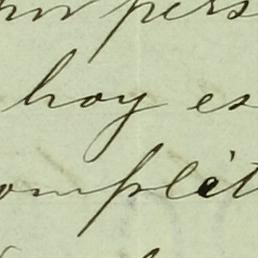 pers
hoy es
omplet